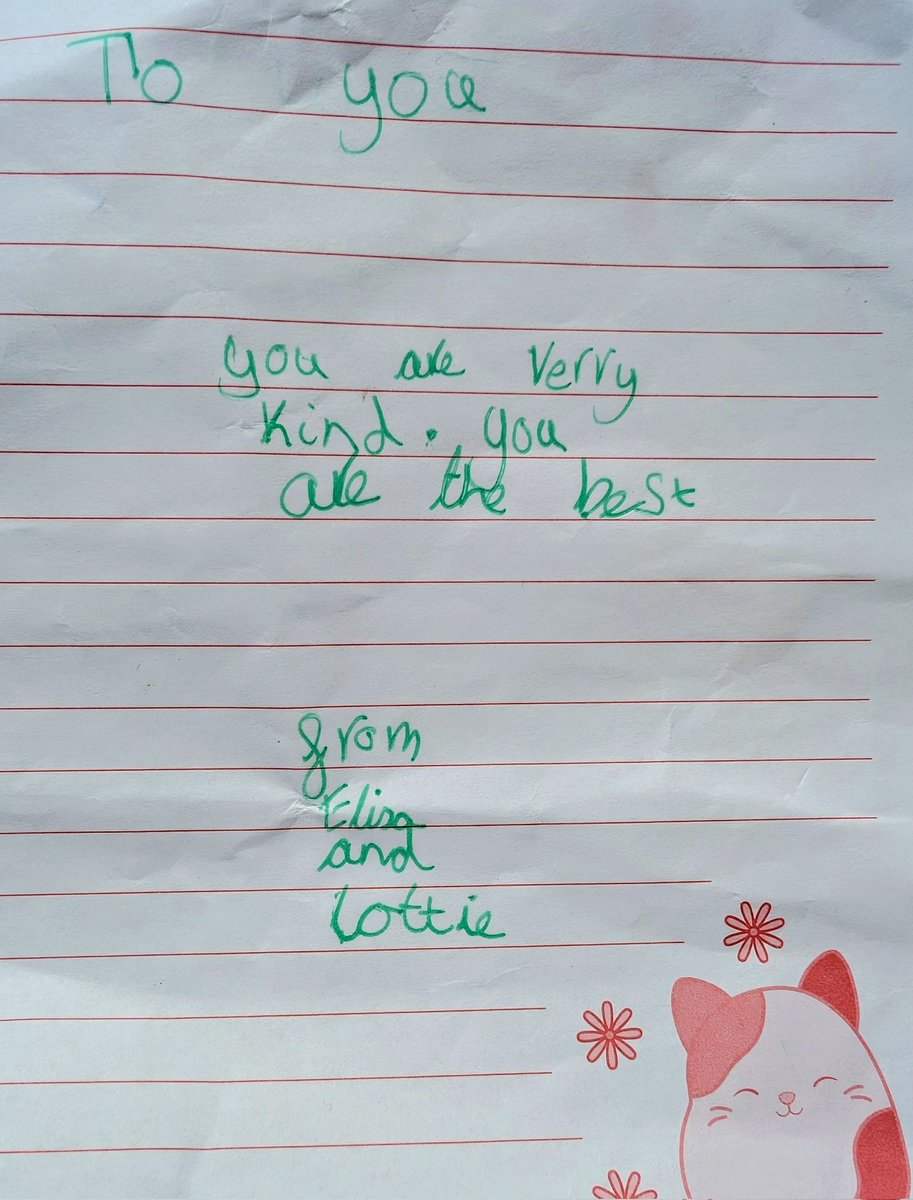 To you
you are verry
kind. you
are the best
from
Eliza
and
Lottie